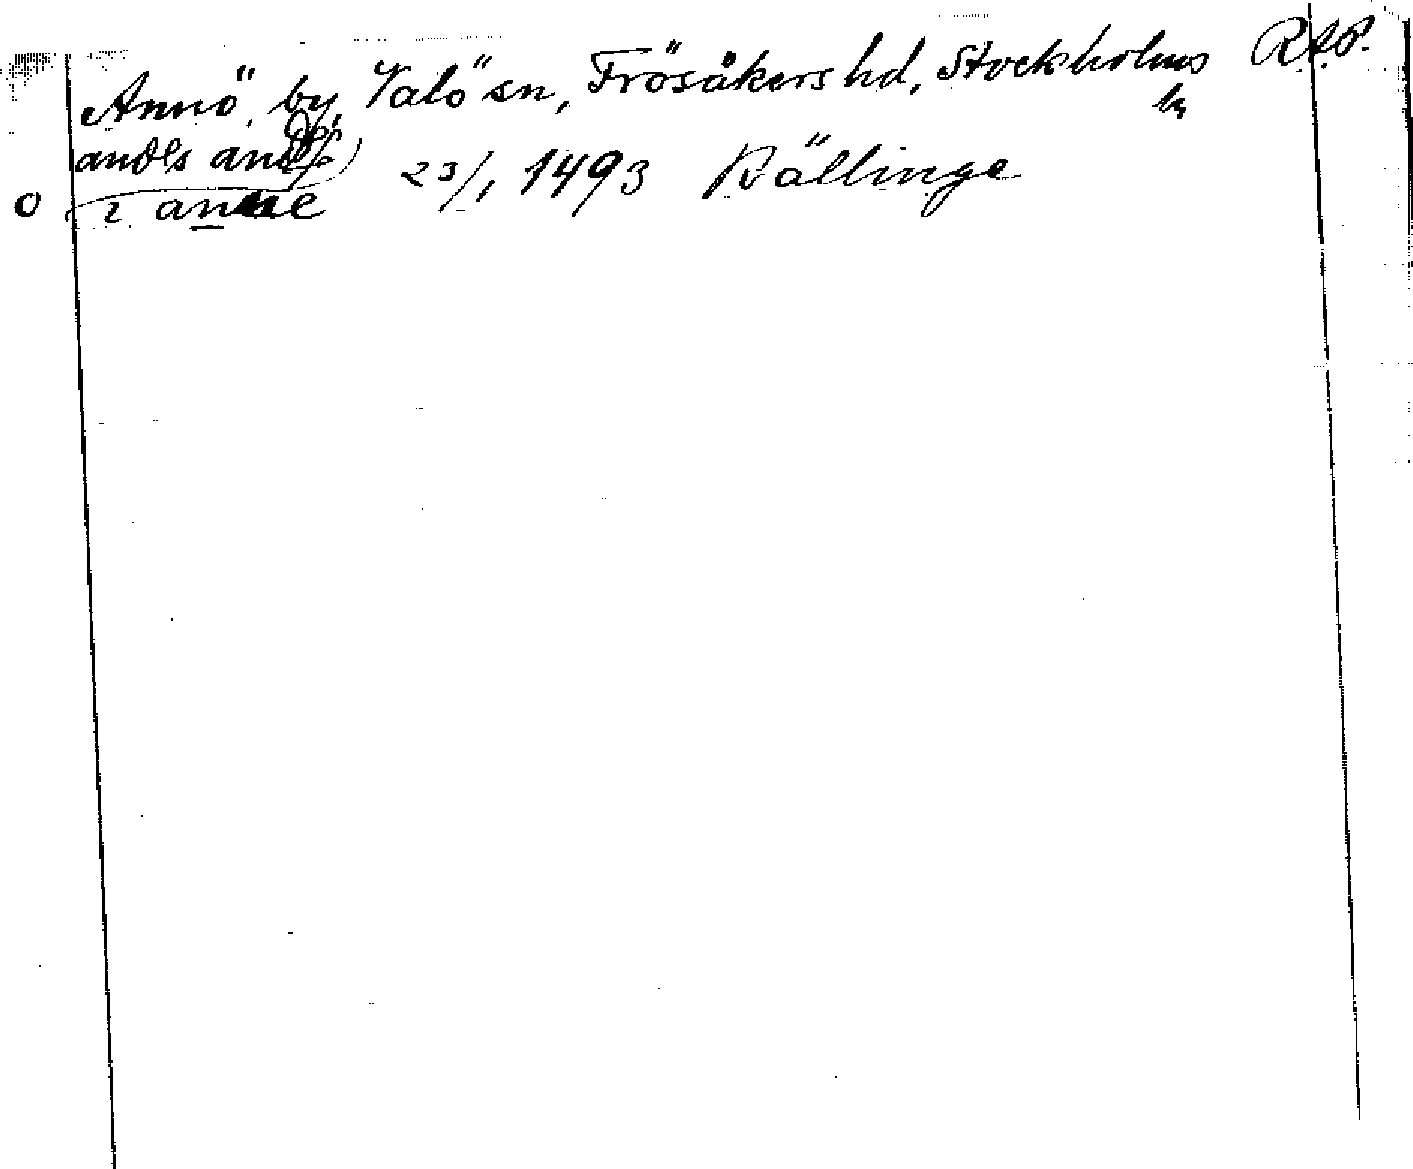 Annö, by, Valö sn, Frösåkers hd, Stockholms RAP.
län
23/1 1493 Bällinge
o i anne